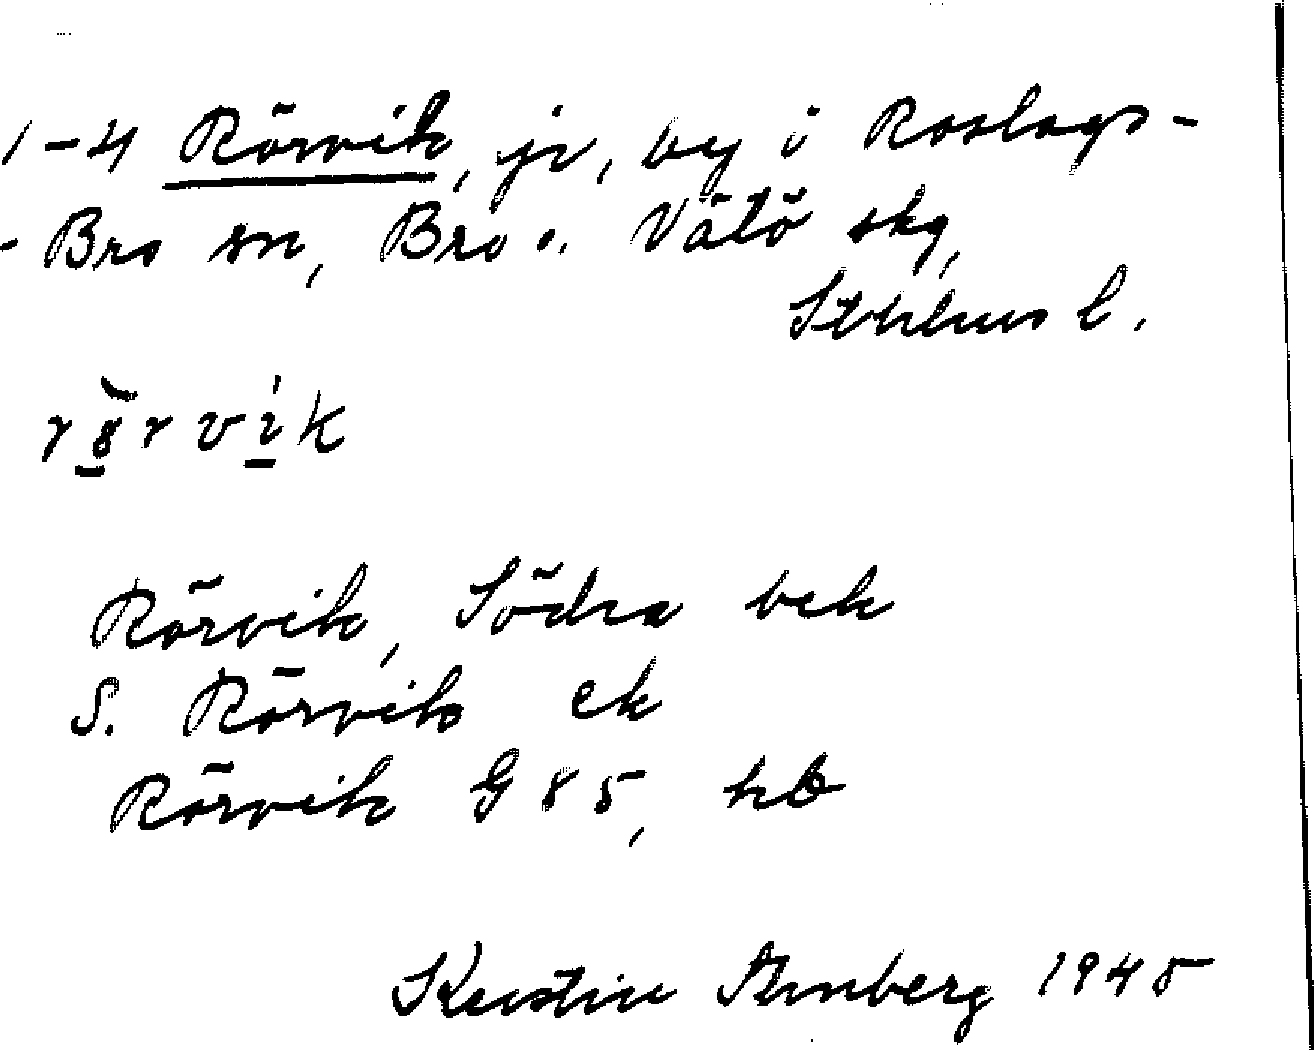 1-4 Rörvik, jr, by i Roslags-
-Bro sn, Bro o. Vätö skg,
Sthlms l.
rö̀rvík
Rörvik, Södra bek
S. Rörvik ek
Rörvik G 85, hb
Kerstin 1945